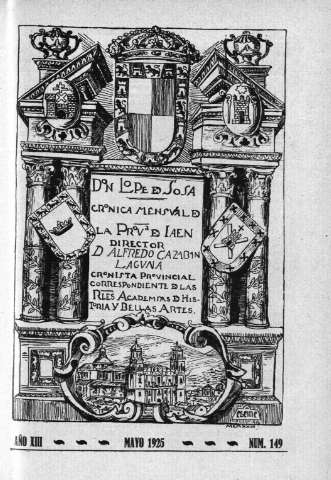 DON LOPE D. SOSA
CRONICA MENSVAL D
LA PROVª D JAEN
DIRECTOR
D ALFREDO CAZABAN
LAGUNA
CRONISTA PROVINCIAL
CORRESPONDIENTE D LAS
RLES ACADEMIAS D HIS-
TORIA Y BELLAS ARTES.
AÑO XIII MAYO 1925 NUM. 149